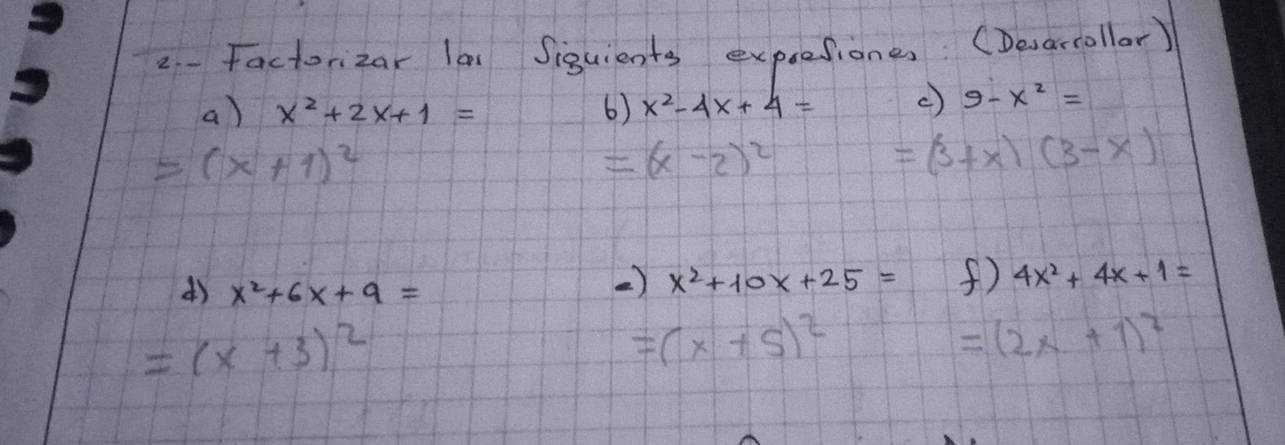 2.- Factorizar las Siguients expresiones: (Desarrollar)
a) x²+2x+1 = b) x²-4x+4= c) 9-x² =
= (x+1)² = (x-2)² = (3+x) (3-x)
d) x²+6x+9 = e) x²+10x+25 = f) 4x²+4x+1=
= (x+3)² =(x+5)² =(2x+1)²